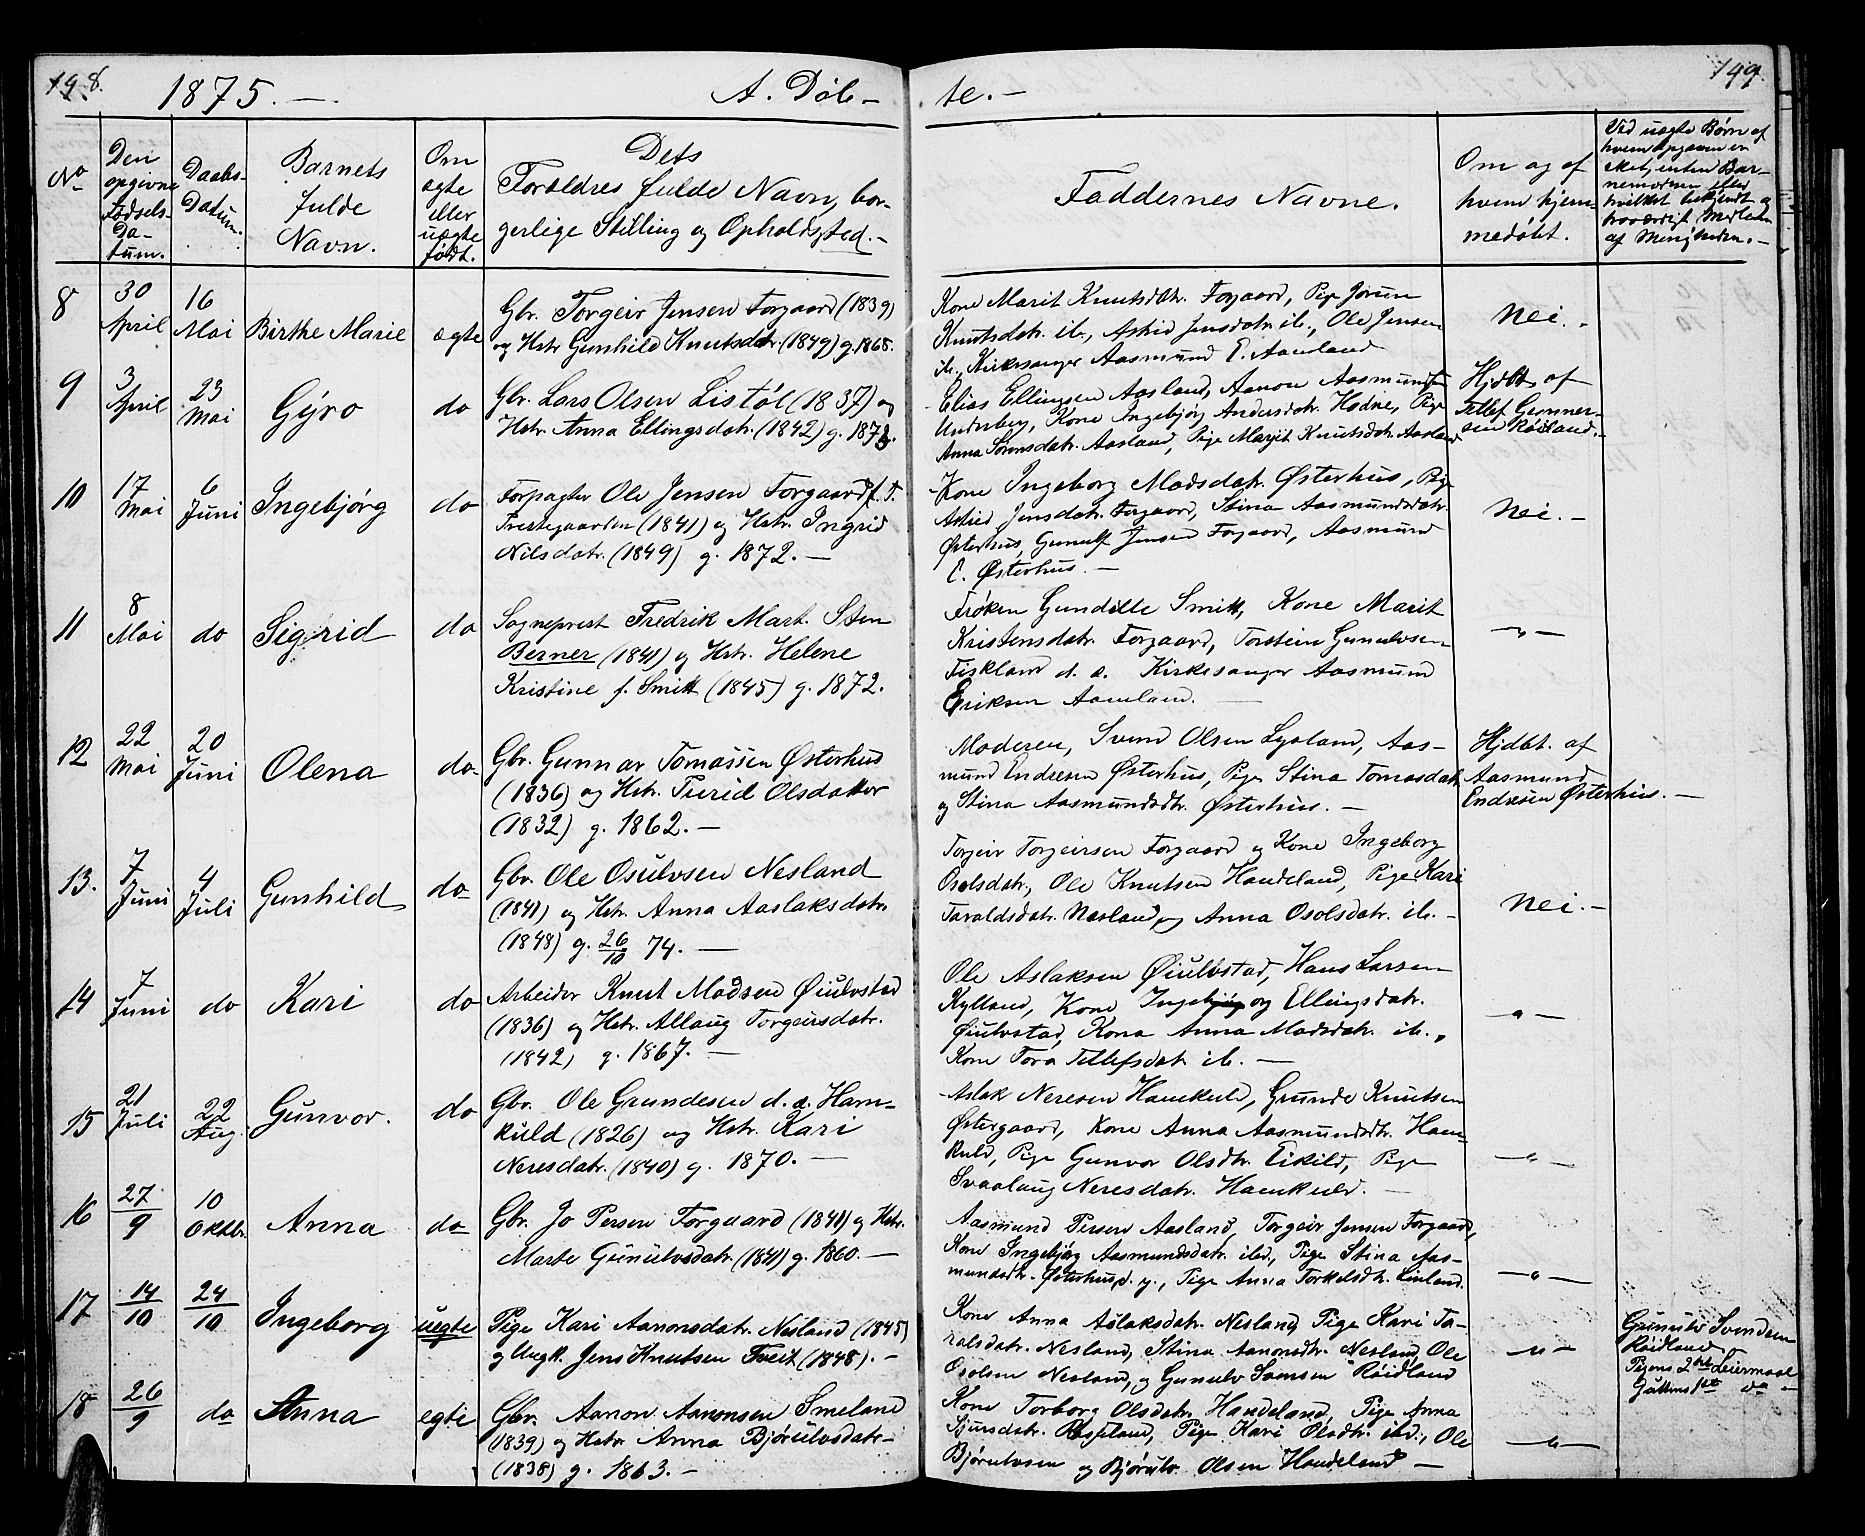 198.
1875. —
A. Døb-
te. —
199.
No
Den
opgivne
Fødsels-
Da-
tum.
Daabs-
Datum.
Barnets
fulde
Navn.
Om
ægte
eller
uægte
født.
Dets
Forældres fulde Navn, bor-
gerlige Stilling og Opholdssted. —
Faddernes Navne.
Om og af
hvem hjem-
medøbt.
Ved uægte Børn af
8
30
April
16
Mai
Birthe Marie
ægte
Gbr. Torgeir Jensen Forgaard (1839)
og Hstr. Gunhild Knutsdatr. (1849) g. 1868.
Kone Marit Knutsdtr. Forgaard, Pige Jorun
Knutsdatr. ib., Astrid Jensdatr. ib., Ole Jensen
ib., Kirkesanger Aasmund E. Aamland
Nei. -
9
3
April
23
Mai
Gyro
do
Gbr. Lars Olsen Listøl (1837) og
Hstr. Anna Ellingsdatr. (1842) g. 1873.
Elias Ellingsen Aasland, Aanon Aasmundsen
Underberg, Kone Ingebjørg Andersdatr. Hodne, Pige
Anna Sørensdatr. Aasland, Pige Marjit Knutsdtr. Aasland
Hjdbt. af
Tellef Gunner-
sen Røisland. -
10
17
Mai
6
Juni
Ingebjørg
do
Forpagter Ole Jensen Forgaard f. T.
Prestegaarden (1841) og Hstr. Ingrid
Nilsdatr. (1849) g. 1872. —
Kone Ingeborg Madsdatr. Østerhus, Pige
Astrid Jensdatr. Forgaard, Stina Aasmundsdatr.
Østerhus, Gunulf Jensen Forgaard, Aasmund
E. Østerhus. —
Nei. -
11
8
Mai
do
Sigrid
do
Sogneprest Fredrik Mart. Sten
Berner (1841) og Hstr. Helene
Kristine f. Smitt (1845) g. 1872.
Frøken Gundelle Smitt, Kone Marit
Kristensdatr. Forgaard, Torstein Gunulvsen
Fiskland d. æ. Kirkesanger Aasmund
Eriksen Aamland. —
— " —
12
22
Mai
20
Juni
Olena
do
Gbr. Gunnar Tomassen Østerhus
(1836) og Hstr. Turid Olsdatter
(1832) g. 1862. —
Moderen, Svend Olsen Lysland, Aas-
mund Endresen Østerhus, Pige Stina Tomasdatr.
og Stina Aasmundsdtr. Østerhus. —
Hjdbt. af
Aasmund
Endresen Østerhus. —
13.
7
Juni
4
Juli
Gunhild
do
Gbr. Ole Osulvsen Nesland
(1841) og Hstr. Anna Aaslaksdatr.
(1848) g. 26/10 74. —
Torgeir Torgeirsen Forgaard og Kone Ingeborg
Osolsdatr., Ole Knutsen Haudeland, Pige Kari
Taraldsdatr. Nesland, og Anna Osolsdatr. ib. -
Nei. -
14
7
Juni
do
Kari
do
Arbeider Knut Madsen Øiulvstad
(1836) og Hstr. Allaug Torgeirsdatr.
(1842) g. 1867. —
Ole Aslaksen Øiulvstad, Hans Larsen
Kylland, Kone Ingebjørg Ellingsdatr.
Øiulvstad, Kona Anna Madsdatr. ib.,
Kone Tora Tellefsdatr. ib. —
— " —
15
21
Juli
22
Aug.
Gunvor.
do
Gbr. Ole Grundesen d. æ. Ham-
kuld (1826) og Hstr. Kari
Neresdatr. (1840) g. 1870. —
Aslak Neresen Hamkuld, Grunde Knutsen
Østergaard, Kone Anna Aasmundsdtr. Ham-
kuld, Pige Gunvor Olsdtr. Eikild, Pige
Svaalaug Neresdatr. Hamkuld. —
— " —
16
27/9
10
Oktbr.
Anna
do
Gbr. Jo Persen Forgaard (1841) og Hstr.
Marte Gunulvsdatr. (1841) g. 1860. —
Aasmund Persen Aasland, Torgeir Jensen Forgaard,
Kone Ingebjørg Aasmundsdatr. ibd., Pige Stina Aas-
mundsdtr. Østerhus d. y., Pige Anna Torkelsdtr. Linland.
— " —
17
14/10
24/10
Ingeborg
uegte
Pige Kari Aanonsdatr. Nesland (1845)
og Ungk. Jens Knutsen Tveit (1848). —
Kone Anna Aslaksdatr. Nesland, Pige Kari Ta-
ralsdatr. Nesland, Stina Aanonsdtr. Nesland, Ole
Osolsen Nesland, og Gunulv Svensen Røidland
— " —
Gunulv Svendsen
Røidland
Pigens 2det Leiermaal
Guttens 1ste do -
18
26/9
do
Anna
egte
Gbr. Aanon Aanonsen Smeland
(1839) og Hstr. Anna Bjørulvsdatr.
(1838) g. 1863. —
Kone Torborg Olsdatr. Haudeland, Pige Anna
Sjursdatr. Røisland, Pige Kari Olsdtr. ibd., Ole
Bjørulvsen og Bjørulv Olsen Haudeland —
— " —